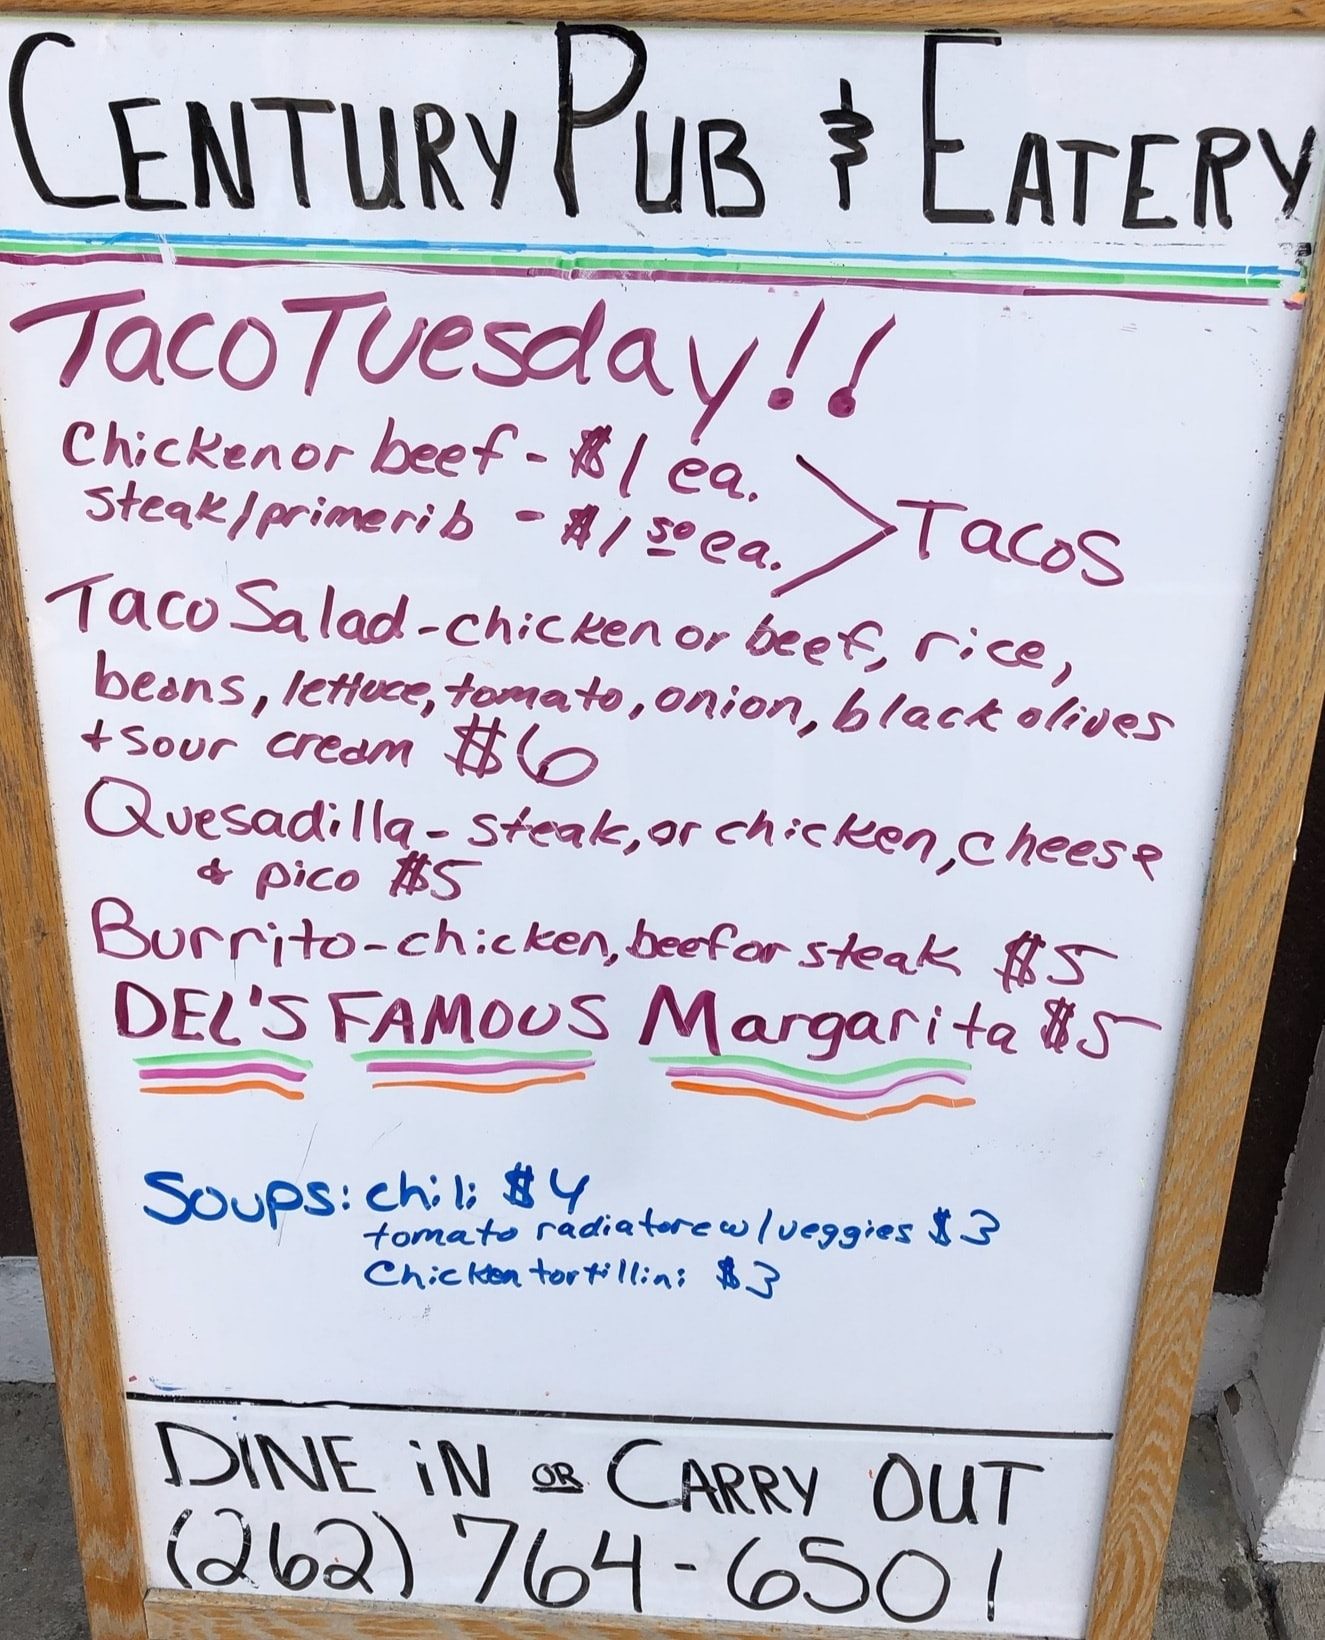 CENTURY PUB & EATERY
Taco Tuesday!!
Chicken or beef - $1 ea.
steak/prime rib - $1 50 ea.
Tacos
Taco Salad - chicken or beef, rice,
beans, lettuce, tomato, onion, black olives
+ sour cream $6
Quesadilla - steak, or chicken, cheese
& pico $5
Burrito - chicken, beef or steak $5
DEL'S FAMOUS Margarita $5
Soups: chili $4
tomato radiatore w/veggies $3
Chicken tortillini $3
DINE iN OR CARRY OUT
(262) 764-6501